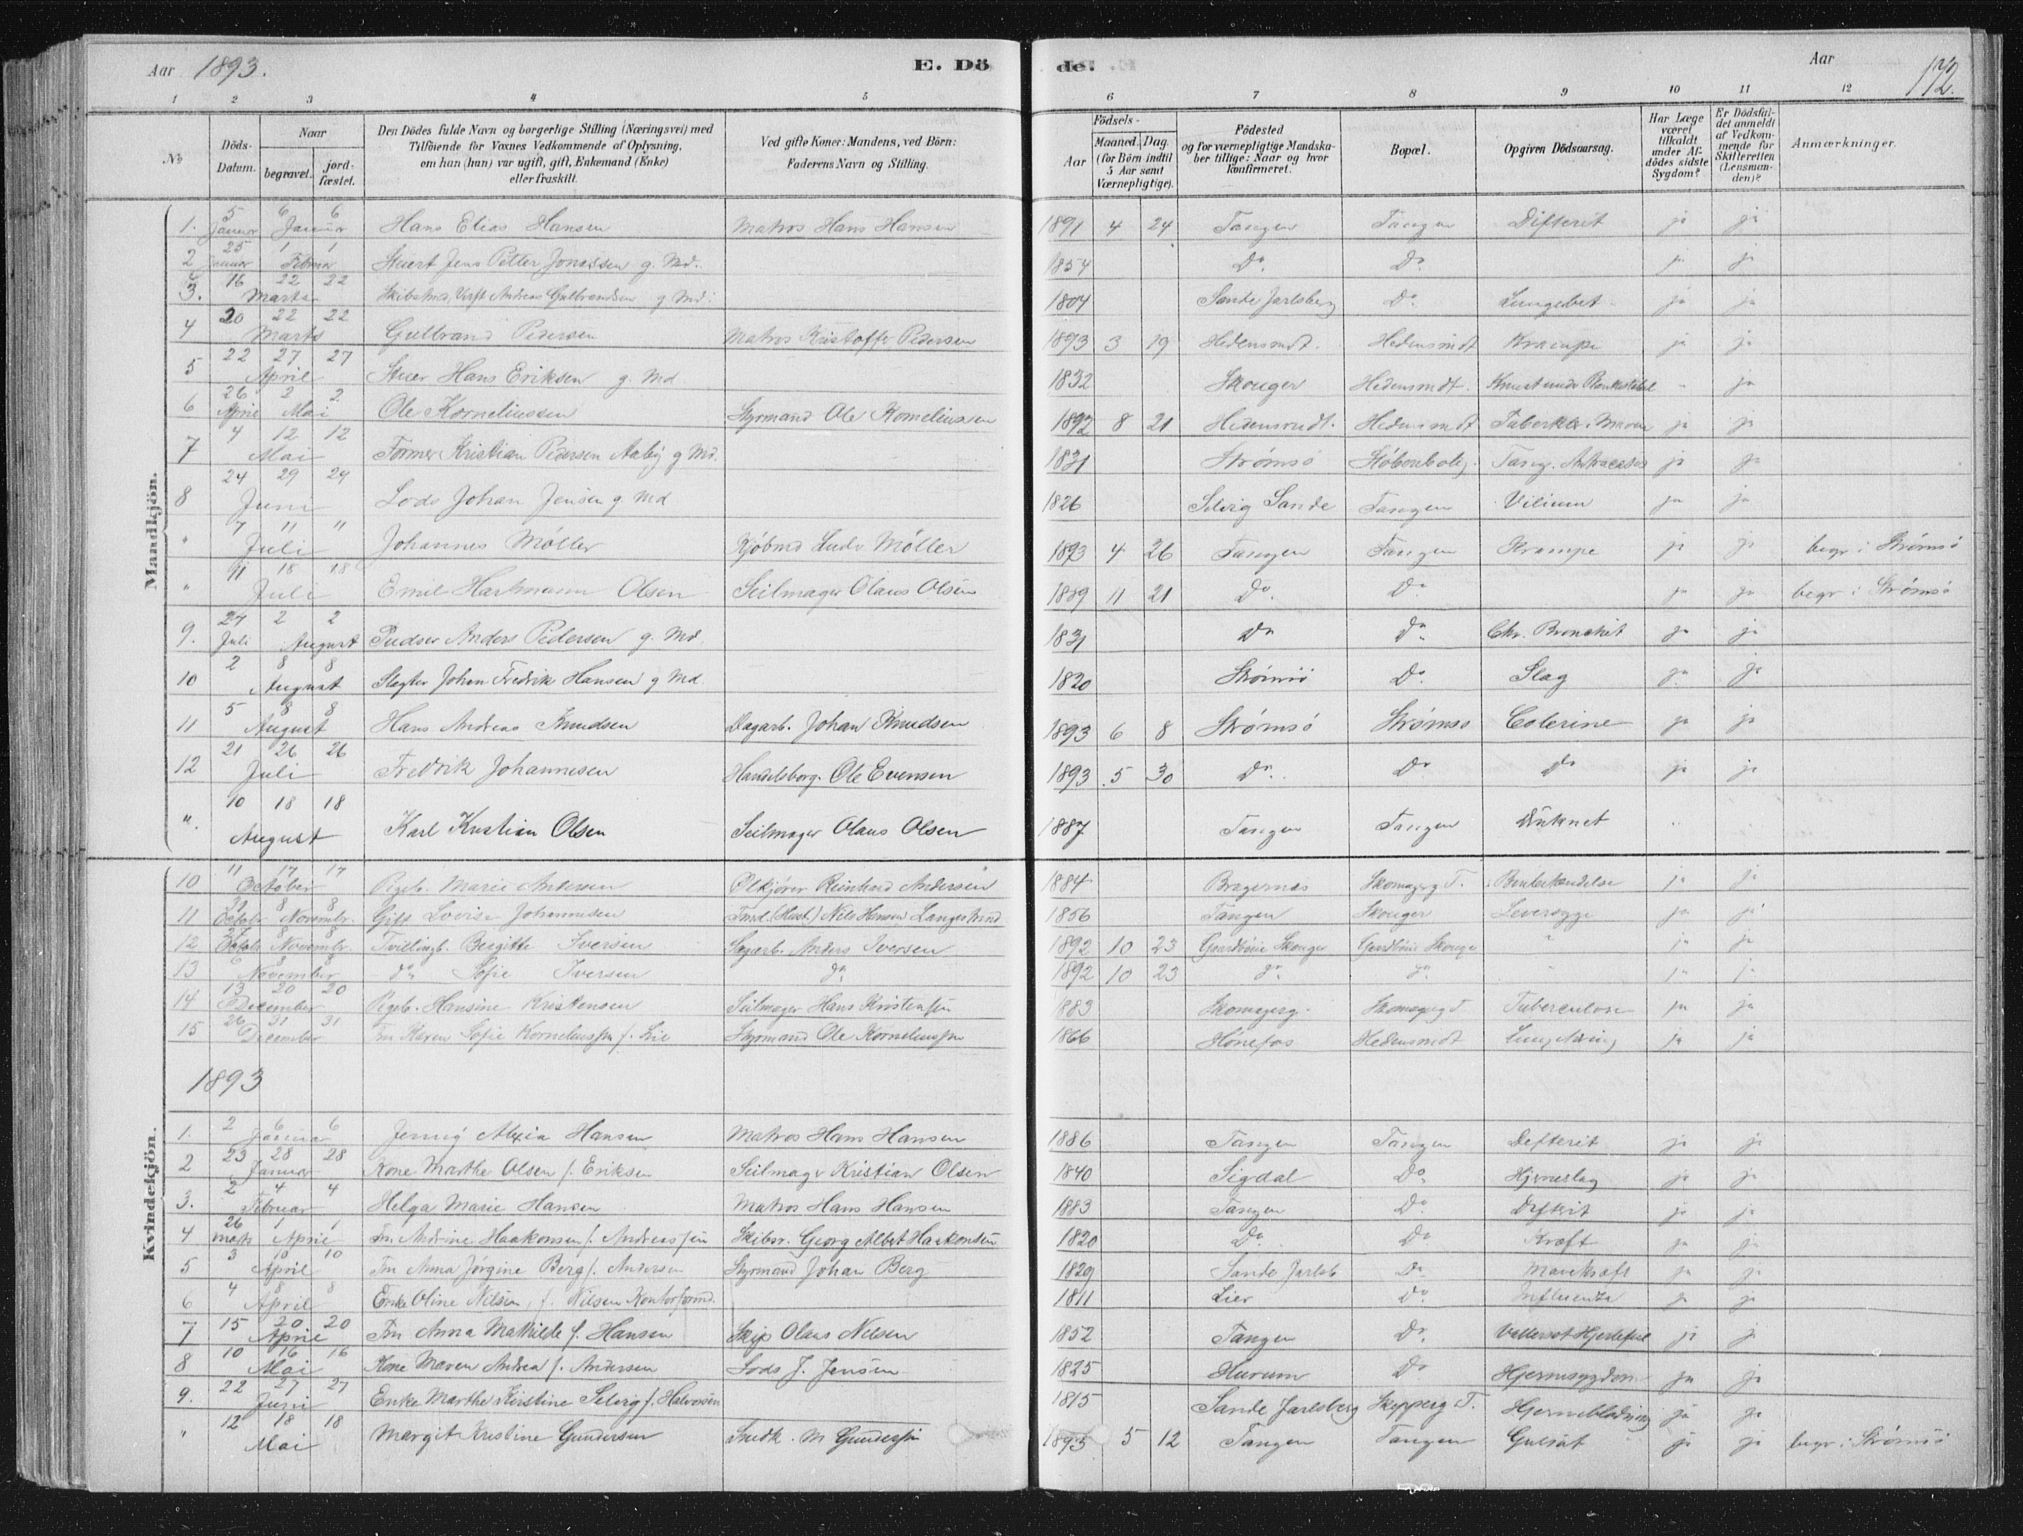 Aar 1893. E. Dö de. Aar 172.
1 2 3 4 5 6 7 8 9 10 11 12
No
Döds-Datum.
Naar begravet. jordfæstet.
Den Dödes fulde Navn og borgerlige Stilling (Næringsvei) med Tilföiende for Voxnes Vedkommende af Oplysning, om han (hun) var ugift, gift, Enkemand (Enke) eller fraskilt.
Ved gifte Koner: Mandens, ved Börn: Faderens Navn og Stilling.
Födsels- Aar Maaned. Dag. (for Börn indtil 5 Aar samt Værnepligtige).
Födested og for værnepligtige Mandskaber tillige: Naar og hvor konfirmeret.
Bopæl.
Opgiven Dödsaarsag.
Har Læge været tilkaldt under Afdödes sidste Sygdom?
Er Dödsfaldet anmeldt af Vedkommende for Skifteretten (Lensmanden)?
Anmærkninger.
Mandkjön.
1. 5 Januar 6 Januar 6 Hans Elias Hansen Matros Hans Hansen 1891 4 24 Tangen Tangen Difterit ja ja
2 25 Januar 1 Februar 1 Jens Petter Jonassen g. Md. 1854 Do. Do. ja ja
3. 16 22 22 Marts Andreas Gulbrandsen g Md. 1804 Sande Jarlsberg Do Lungebet. ja ja
4 20 22 22 Marts Gulbrand Pedersen Matros Kristoffer Pedersen 1893 3 19 Hedensmdt. Hedensmdt Krampe ja ja
5 22 27 27 April Hans Eriksen g. Md 1832 Skouger Hedensmdt. - ja
6 26 April 2 Mai 2 Ole Korneliussen Styrmand Ole Korneliussen 1892 8 21 Hedensmdt. Hedensmdt ja ja
7 4 12 12 Mai Former Kristian Pedersen Aaby g Md. 1831 Strømsø ja ja
8 24 29 29 Juni Lods Johan Jensen g. Md 1826 Selvig Sande Tangen ja ja
" 7 11 11 Juli Johannes Møller Kjøbmd Ludv Møller 1893 4 26 Tangen Tangen Krampe ja ja begr. i Strømsø
" 11 18 18 Juli Emil Hartmann Olsen Seilmager Olaus Olsen 1889 11 21 Do. Do ja ja begr. i Strømsø
9. 27 Juli 2 August 2 Anders Pedersen g. Md. 1831 Do Do Chr. Bronchit ja ja
10 2 8 8 August Slagter Johan Fredrik Hansen g Md. 1820 Strømsø Do Slag ja ja
11 5 8 8 August Hans Andreas Knudsen Dagarb. Johan Knudsen 1893 6 8 Strømsø Strømsø Colerine ja ja
12 21 26 26 Juli Fredrik Johannesen Handelsborg. Ole Evensen 1893 5 30 Do. Do Do ja ja
". 10 18 18 August Karl Kristian Olsen Seilmager Olaus Olsen 1887 Tangen Tangen Druknet
Kvindekjön.
10 11 17 17 October Pigeb. Marie Andersen Ølkjører Reinhard Andersen 1884 Bragernæs Skomagerg T. ja ja
11 October 8 November 8 Gift Lovise Johannesen Nils Hansen Langestrand 1856 Tangen Skouger Leversyge ja ja
12 October 8 November 8 Tvillingb. Birgitte Iversen Anders Iversen 1892 10 23 Skouger Skouger " ja ja
13 6 8 8 November do Sofie Iversen do 1892 10 23 do do ja ja
14 13 20 20 December Pigeb. Hansine Kristensen Seilmager Hans Kristensen 1883 Skomagerg. Skomagerg T Tuberculose ja ja
15 26 31 31 December Fru Karen Sofie Korneliussen f. Lie Styrmand Ole Korneliussen 1866 Hønefos Hedensmdt ja ja
1893
1. 2 6 6 Januar Jenny Alexia Hansen Matros Hans Hansen 1886 Tangen Tangen Defterit ja ja
2 23 28 28 Januar Kone Marthe Olsen f. Eriksen Seilmager Kristian Olsen 1840 Sigdal Do Hjerneslag ja ja
3. 2 4 4 Februar Helga Marie Hansen Matros Hans Hansen 1883 Tangen Do Defterit ja ja
4 26 Marts 1 April 1 Fru Andrine Haakonsen f. Andreassen Skibsr. Georg Albert Haakonsen 1820 Do. Do Kræft ja ja
5 3 10 10 April Fru Anna Jørgine Berg f. Andersen Styrmand Johan Berg 1829 Sande Jarlsb Do ja ja
6 4 8 8 April Enke Oline Nilsen, f. Nilsen 1811 Lier Do Influenza ja ja
7 15 20 20 April Fru Anna Mathilde f. Hansen Skip Olaus Nilsen 1852 Tangen Do ja ja
8 10 16 16 Mai Kone Maren Andrea f. Andersen Lods J. Jensen 1825 Hurum Do Hjernesygdom ja ja
9. 22 27 27 Juni Enke Marthe Kirstine Selvig f. Halvorsen 1815 Sande Jarlsberg Skepperg T. Hjerneblødning ja ja
" 12 18 18 Mai Margit Kristine Gundersen Snedk. M Gundersen 1893 5 12 Tangen Tangen Gulsot ja ja begr. i Strømsø